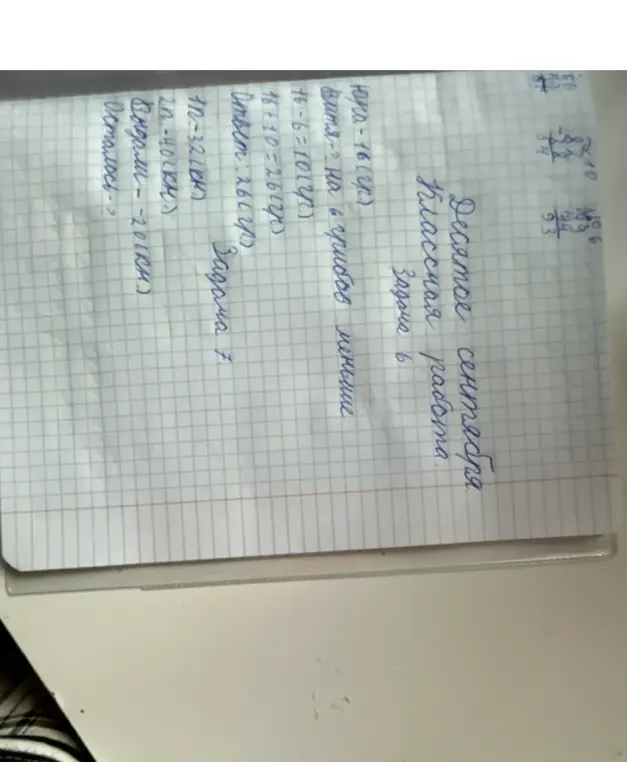 Десятое сентября.
Классная работа.
Задача 6.
Юра - 16 (гр)
Витя - ? на 6 грибов меньше
16 - 6 = 10 (гр)
16 + 10 = 26 (гр)
Ответ: 26 (гр)
Задача 7.
1п - 32 (кн)
2п - 40 (кн)
- 20 (кн)
Осталось - ?